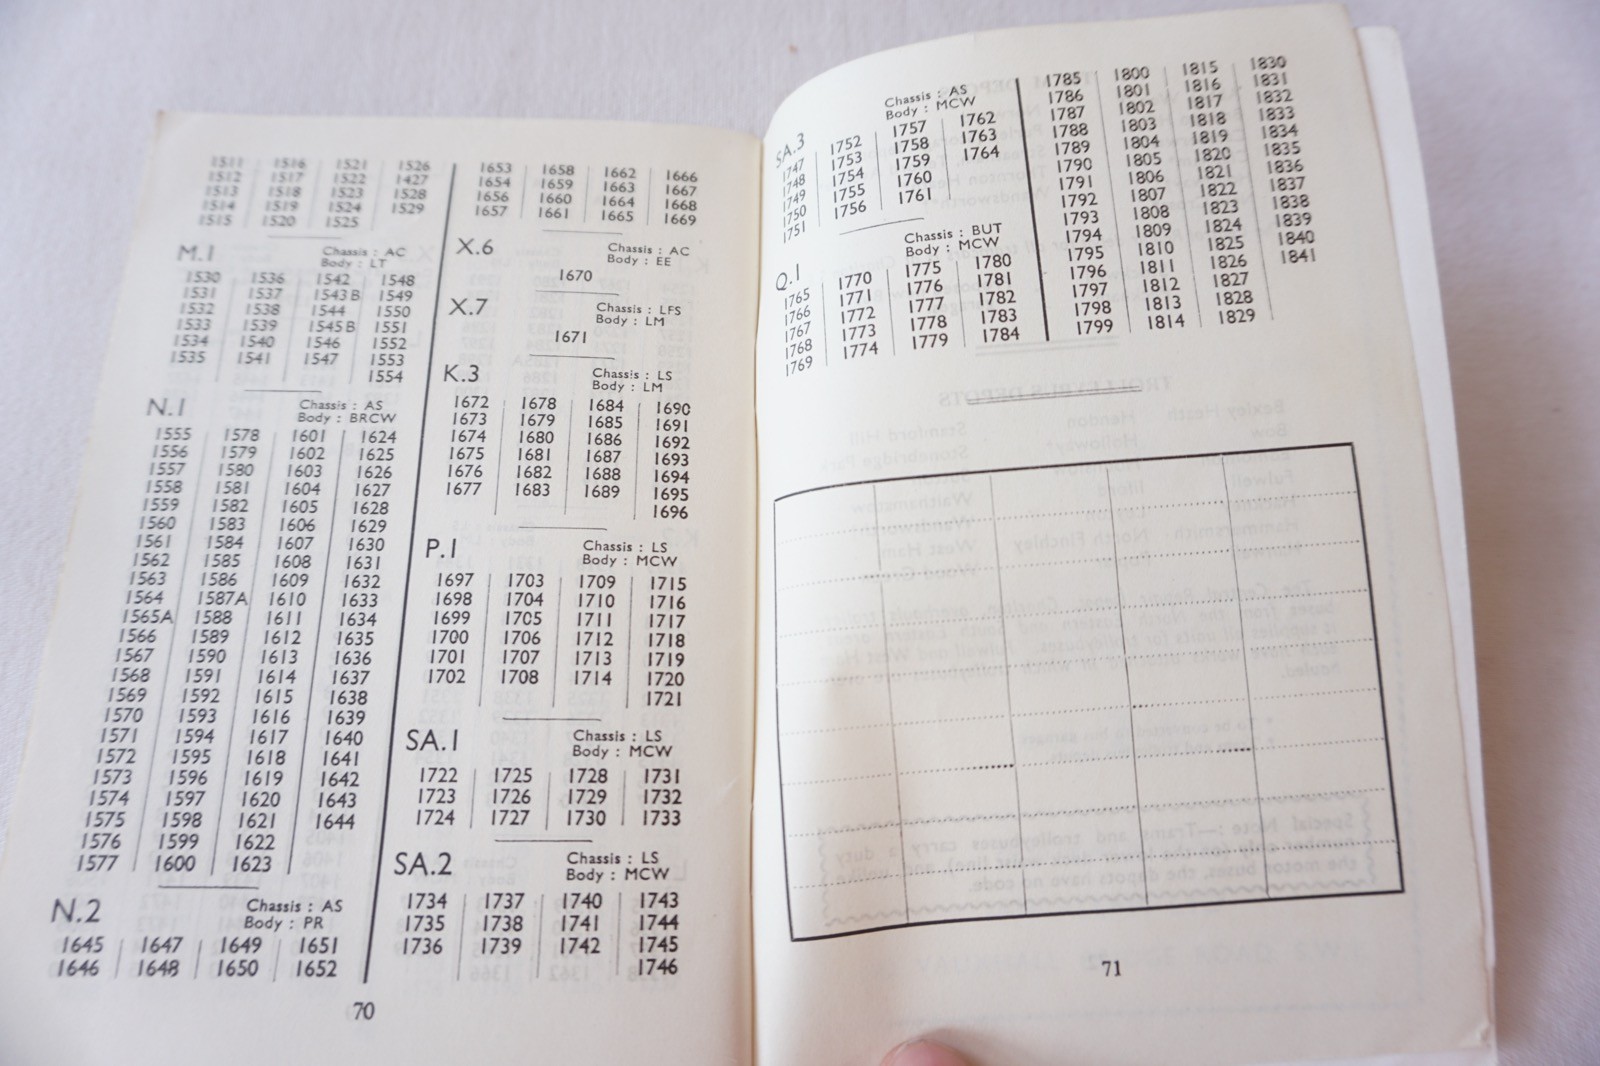 1511 1516 1521 1526
1512 1517 1522 1427
1513 1518 1523 1528
1514 1519 1524 1529
1515 1520 1525
M.1 Chassis : AC
Body : LT
1530 1536 1542 1548
1531 1537 1543B 1549
1532 1538 1544 1550
1533 1539 1545B 1551
1534 1540 1546 1552
1535 1541 1547 1553
1554
N.1 Chassis : AS
Body : BRCW
1555 1578 1601 1624
1556 1579 1602 1625
1557 1580 1603 1626
1558 1581 1604 1627
1559 1582 1605 1628
1560 1583 1606 1629
1561 1584 1607 1630
1562 1585 1608 1631
1563 1586 1609 1632
1564 1587A 1610 1633
1565A 1588 1611 1634
1566 1589 1612 1635
1567 1590 1613 1636
1568 1591 1614 1637
1569 1592 1615 1638
1570 1593 1616 1639
1571 1594 1617 1640
1572 1595 1618 1641
1573 1596 1619 1642
1574 1597 1620 1643
1575 1598 1621 1644
1576 1599 1622
1577 1600 1623
N.2 Chassis : AS
Body : PR
1645 1647 1649 1651
1646 1648 1650 1652
1653 1658 1662 1666
1654 1659 1663 1667
1656 1660 1664 1668
1657 1661 1665 1669
X.6 Chassis : AC
Body : EE
1670
X.7 Chassis : LFS
Body : LM
1671
K.3 Chassis : LS
Body : LM
1672 1678 1684 1690
1673 1679 1685 1691
1674 1680 1686 1692
1675 1681 1687 1693
1676 1682 1688 1694
1677 1683 1689 1695
1696
P.1 Chassis : LS
Body : MCW
1697 1703 1709 1715
1698 1704 1710 1716
1699 1705 1711 1717
1700 1706 1712 1718
1701 1707 1713 1719
1702 1708 1714 1720
1721
SA.1 Chassis : LS
Body : MCW
1722 1725 1728 1731
1723 1726 1729 1732
1724 1727 1730 1733
SA.2 Chassis : LS
Body : MCW
1734 1737 1740 1743
1735 1738 1741 1744
1736 1739 1742 1745
1746
70
SA.3 Chassis : AS
Body : MCW
1747 1752 1757 1762
1748 1753 1758 1763
1749 1754 1759 1764
1750 1755 1760
1751 1756 1761
Q.1 Chassis : BUT
Body : MCW
1765 1770 1775 1780
1766 1771 1776 1781
1767 1772 1777 1782
1768 1773 1778 1783
1769 1774 1779 1784
1785 1800 1815 1830
1786 1801 1816 1831
1787 1802 1817 1832
1788 1803 1818 1833
1789 1804 1819 1834
1790 1805 1820 1835
1791 1806 1821 1836
1792 1807 1822 1837
1793 1808 1823 1838
1794 1809 1824 1839
1795 1810 1825 1840
1796 1811 1826 1841
1797 1812 1827
1798 1813 1828
1799 1814 1829
71